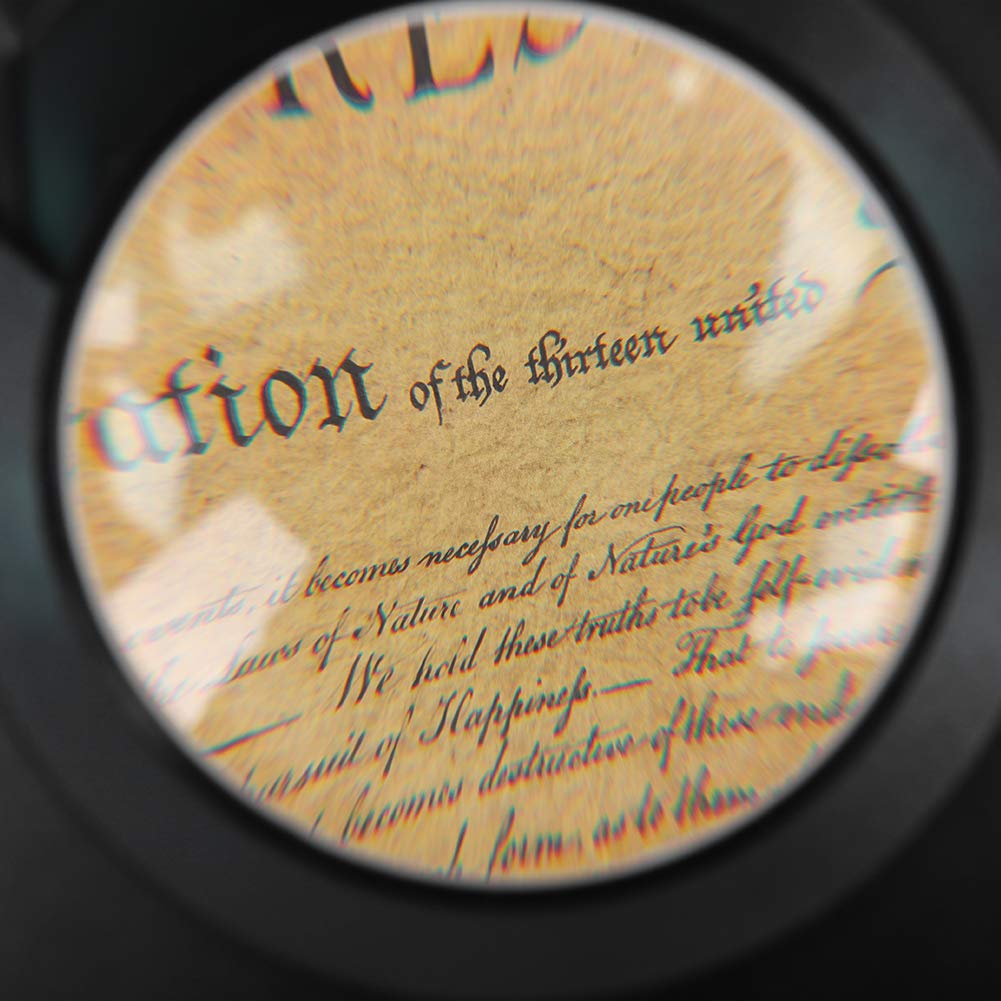 RES
ation of the thirteen united
events, it becomes neceſsary for one people to diſsol
the Laws of Nature and of Nature's God entitle
We hold these truths to be ſelf-evident
pursuit of Happineſs.— That to secure
becomes destructive of these ends
such form, as to them